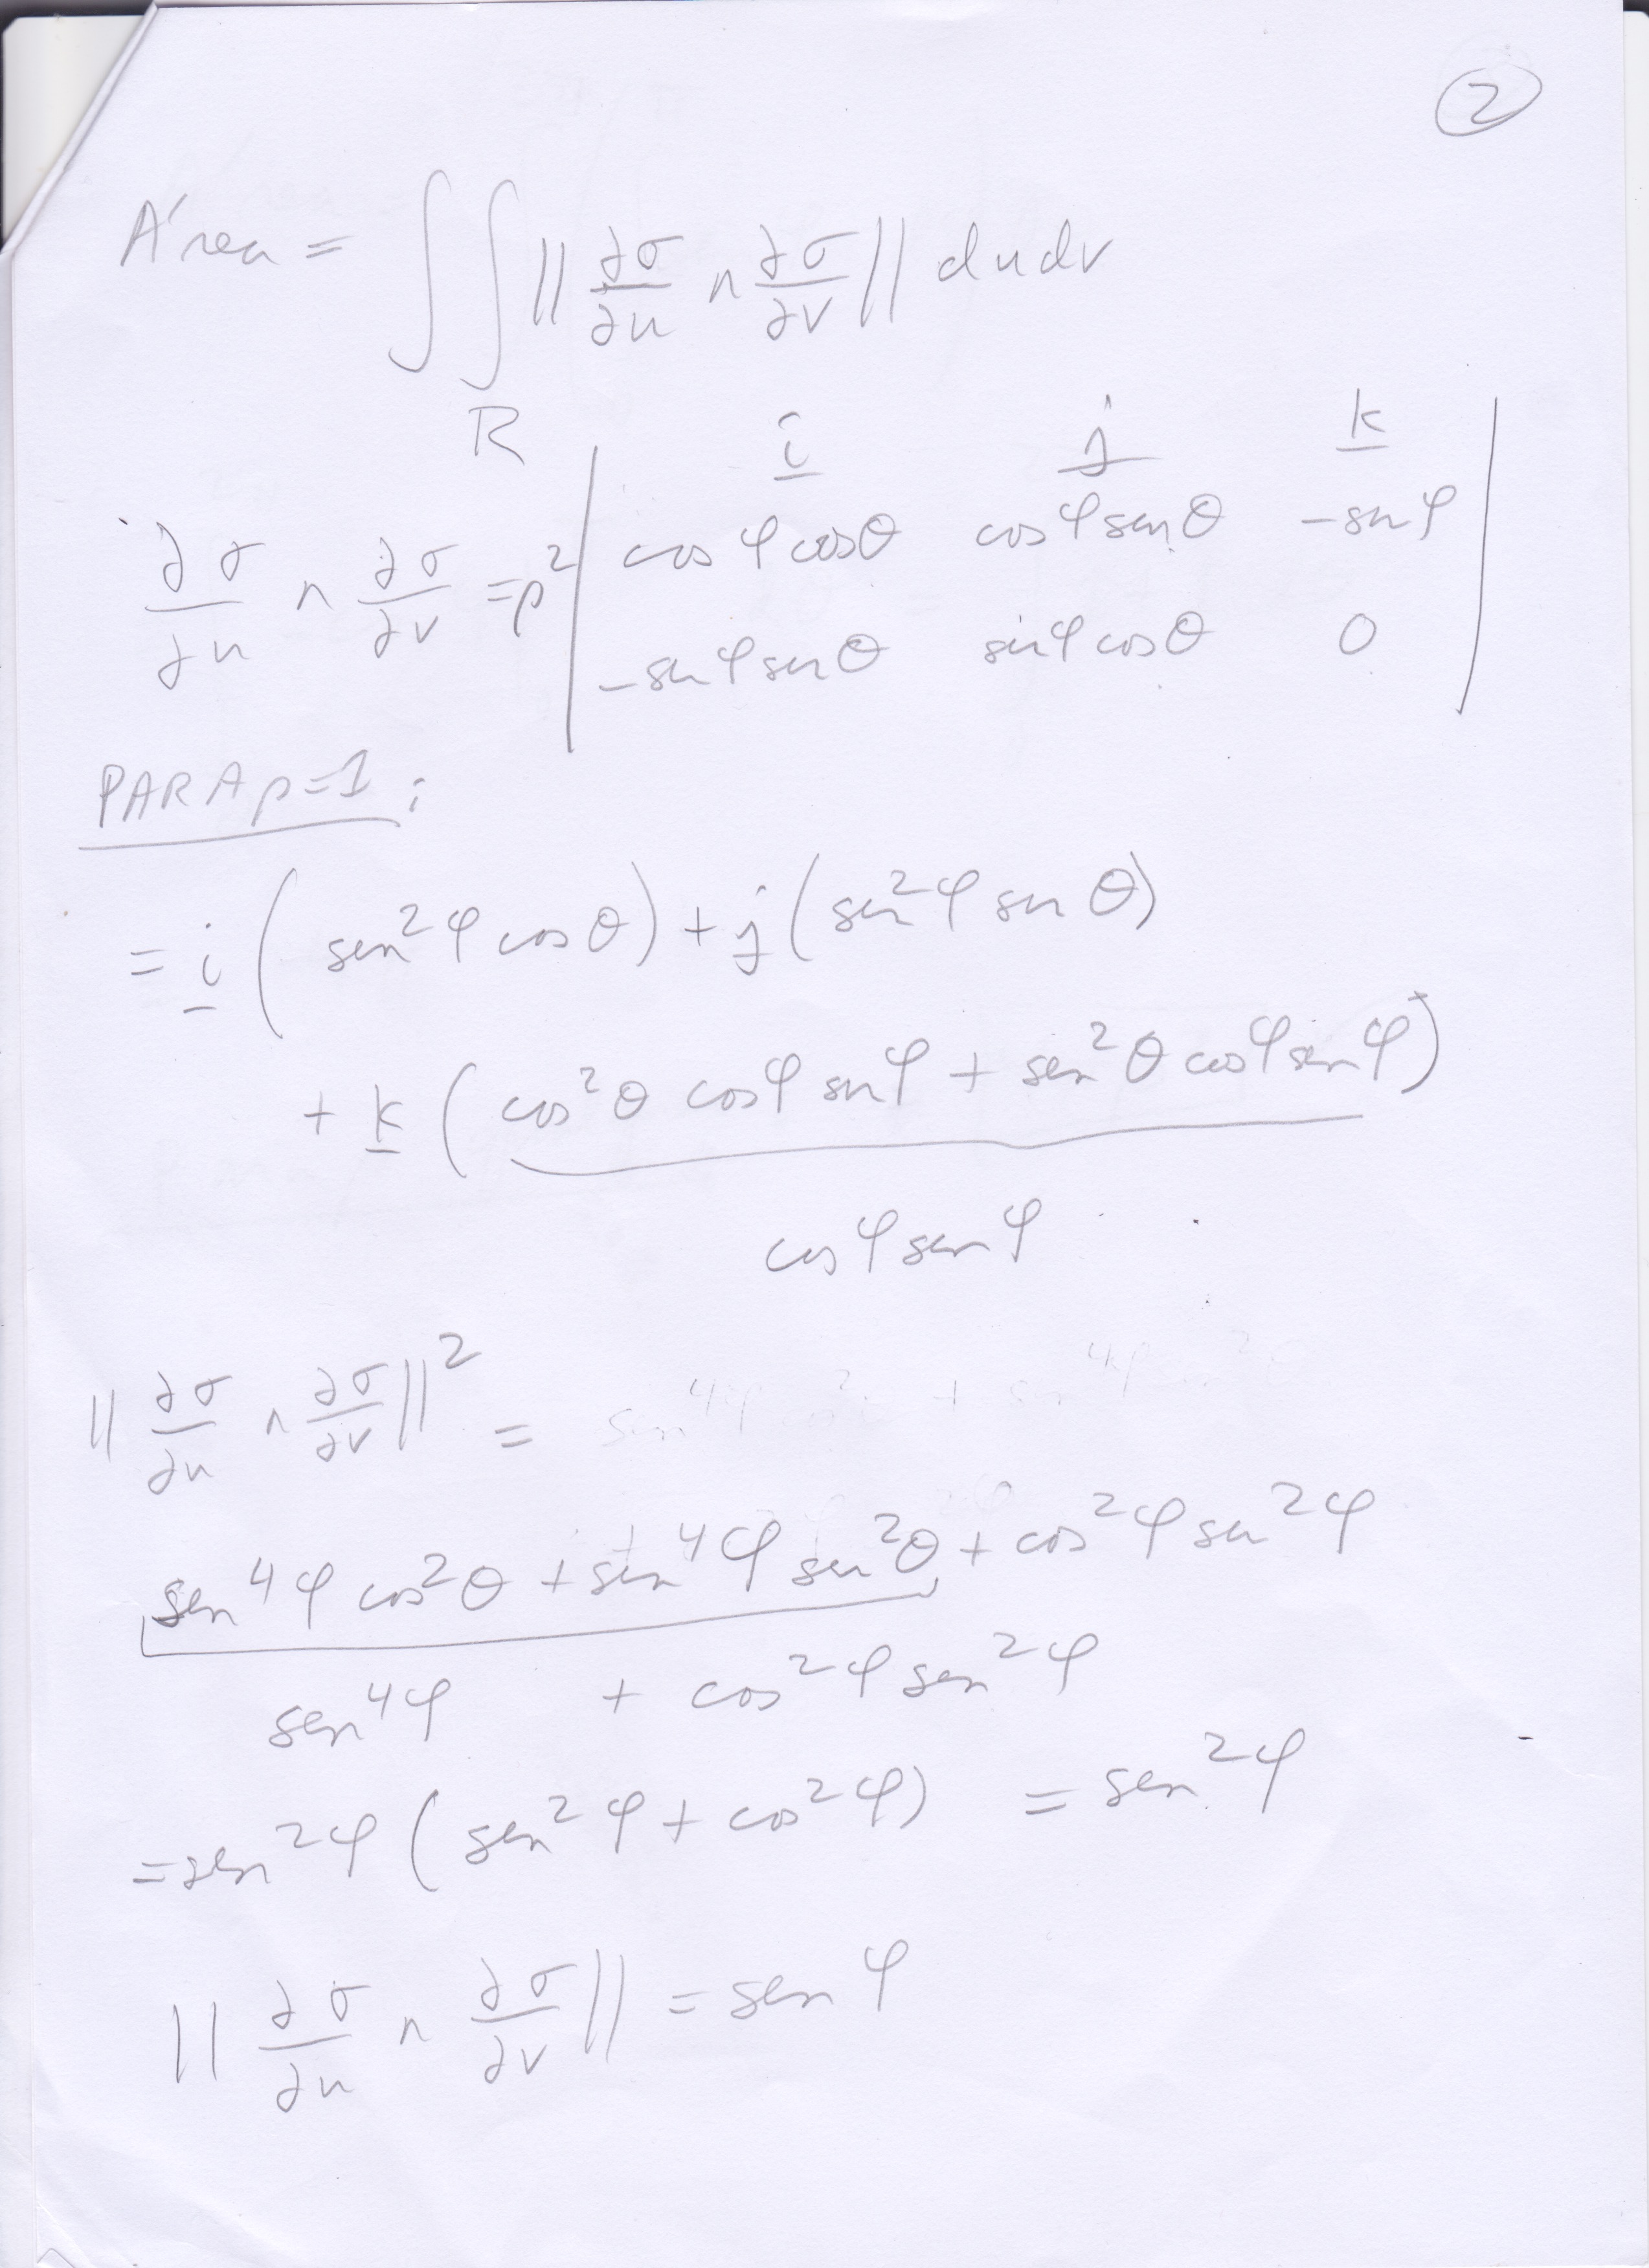 2
Área = ∫∫_R ||∂σ/∂u ∧ ∂σ/∂v|| du dv
i j k
∂σ/∂u ∧ ∂σ/∂v = ρ² | cos φ cos θ cos φ sen θ -sen φ |
-sen φ sen θ sin φ cos θ 0
PARA ρ=1:
= i (sen²φ cos θ) + j (sen²φ sen θ)
+ k (cos²θ cos φ sen φ + sen²θ cos φ sen φ)
cos φ sen φ
||∂σ/∂u ∧ ∂σ/∂v||² =
sen⁴φ cos²θ + sen⁴φ sen²θ + cos²φ sen²φ
sen⁴φ + cos²φ sen²φ
= sen²φ (sen²φ + cos²φ) = sen²φ
||∂σ/∂u ∧ ∂σ/∂v|| = sen φ